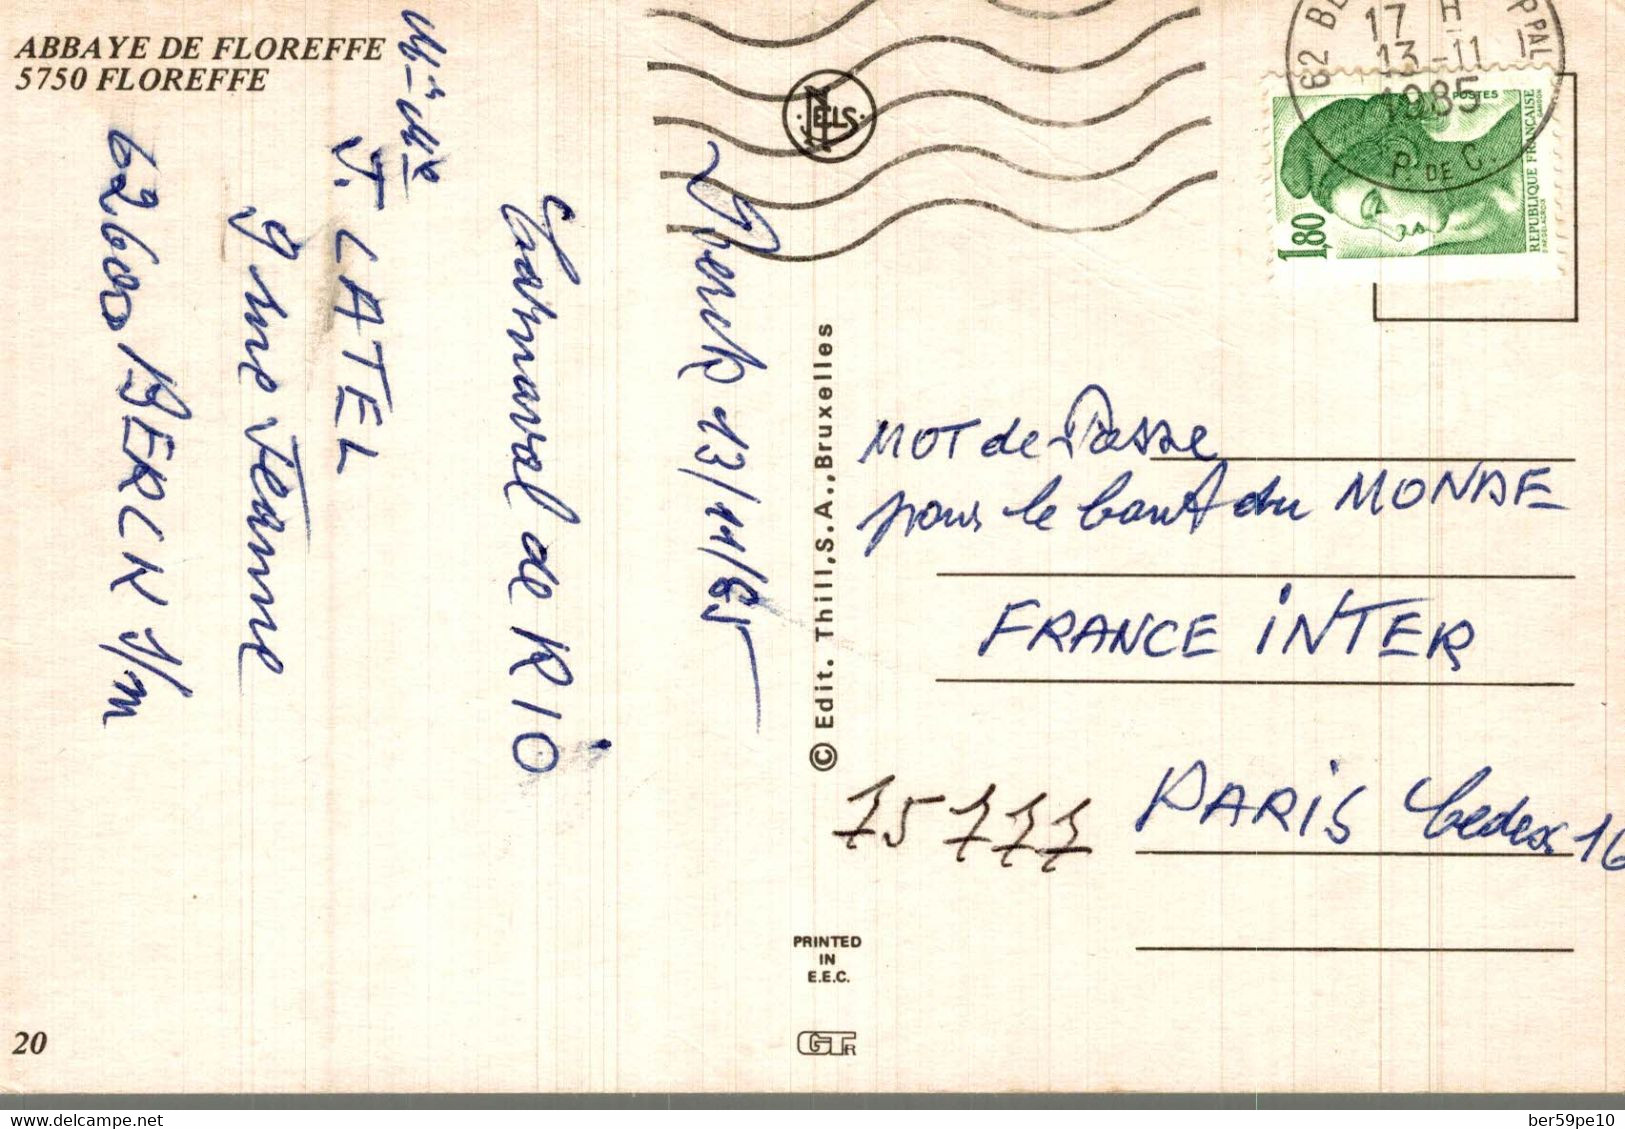 ABBAYE DE FLOREFFE
5750 FLOREFFE
Berck 13/11/85
Carnaval de RIO
Mr - Me
J. LATEL
9 rue Jeanne
62600 BERCK s/m
20
NELS
© Edit. Thill, S.A., Bruxelles
PRINTED
IN
E.E.C.
GTR
17 H
13-11
1985
P. DE C.
POSTES
1,80
REPUBLIQUE FRANÇAISE
MOT de Passe
pour le bout du MONDE
FRANCE iNTER
PARiS Cedex 16
75777
delcampe.net
ber59pe10